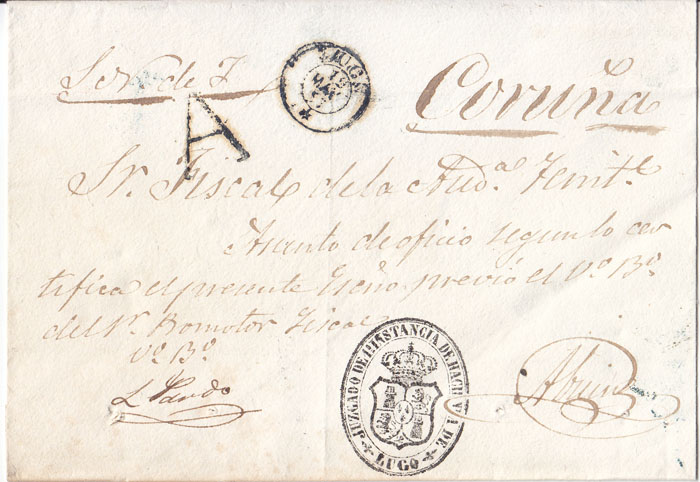 S. N. de
Coruña
A
Sr. Fiscal de la Aud.al Territ.l
Asunto de oficio segun lo cer
tifica el presente Escño. previo el Vº. Bº.
del Sr. Promotor Fiscal
Vº. Bº.
L Pardo
JUZGADO DE 1ª INSTANCIA DE HACIENDA DE
LUGO